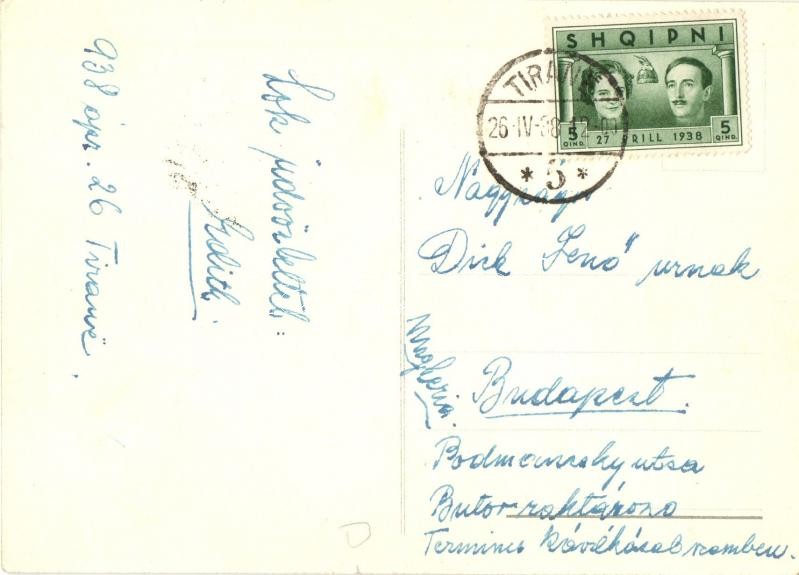 938 ápr. 26 Tirane.
Sok üdvözlettel:
Edith
SHQIPNI
5 QIND. 27 PRILL 1938 5 QIND.
TIRANE
26-IV-38-12-00
* 5 *
Nagyságos
Dick Jenő urnak
Magharia.
Budapest.
Podmaniczky utca
Butor raktáros
Terminus kávéházal szemben.